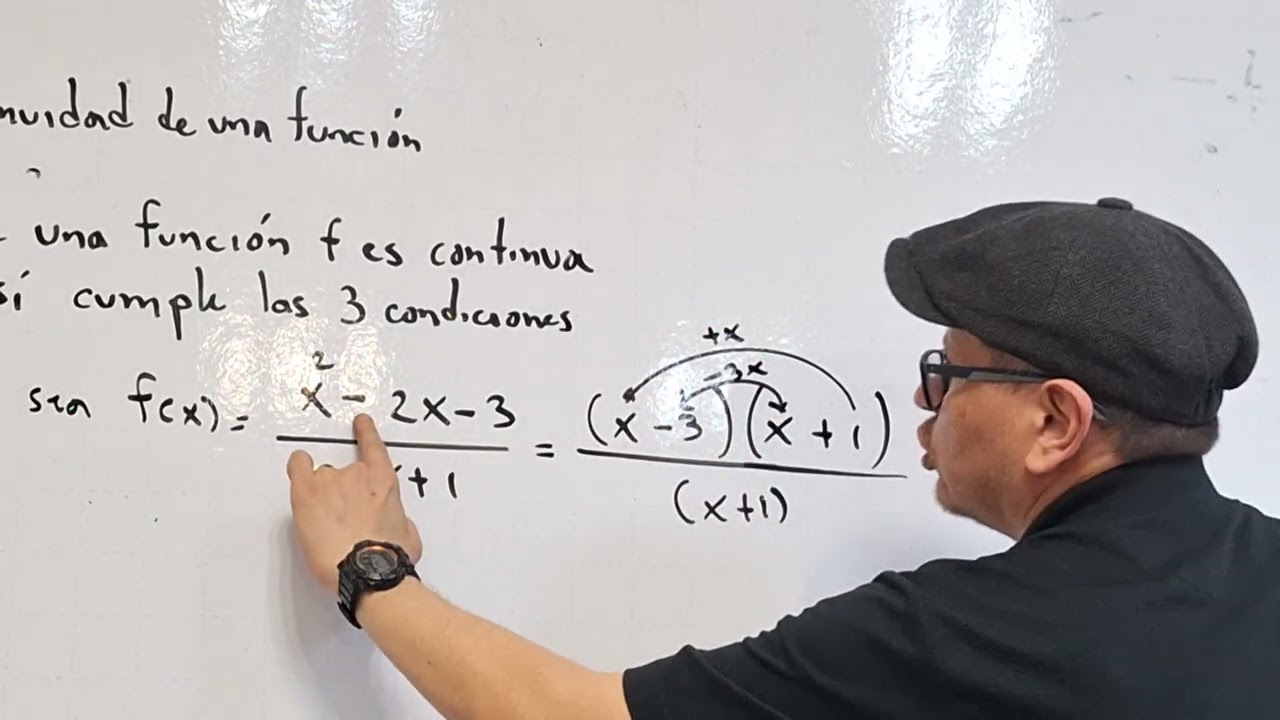 nuidad de una función
una función f es continua
sí cumple las 3 condiciones
+x
-3x
sea f(x) = x² - 2x - 3 / x + 1 = (x - 3)(x + 1) / (x+1)